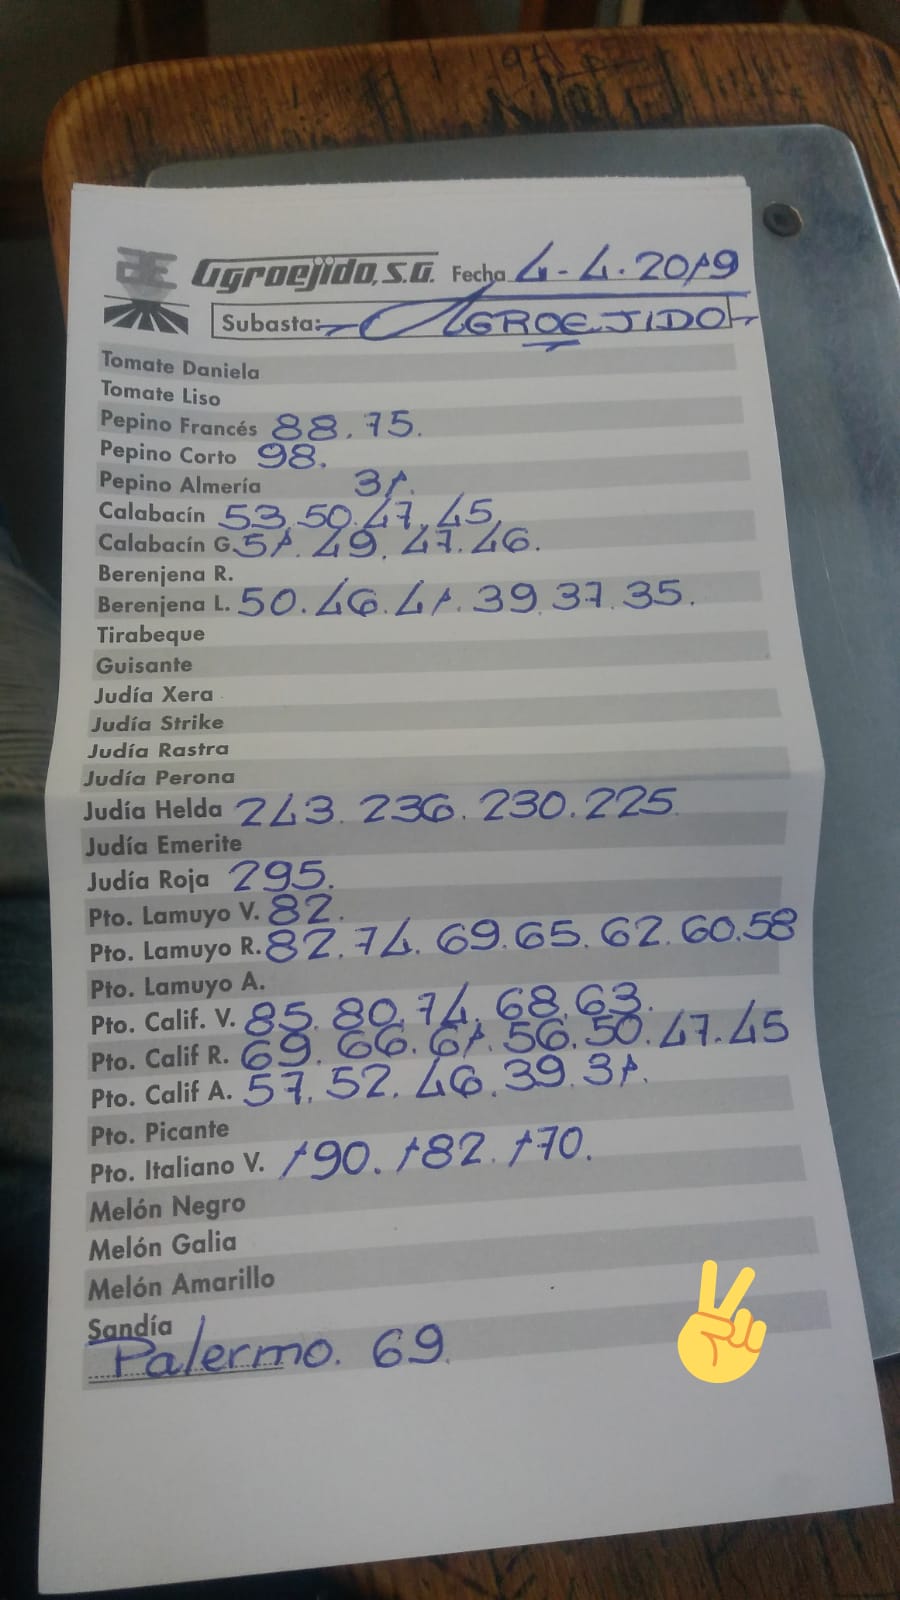 Agroejido, S.A. Fecha 4-4.2019
Subasta: AGROEJIDO
Tomate Daniela
Tomate Liso
Pepino Francés 88.75.
Pepino Corto 98.
Pepino Almería 31.
Calabacín 53.50.47.45
Calabacín G. 51.49.47.46.
Berenjena R.
Berenjena L. 50.46.41.39.37.35.
Tirabeque
Guisante
Judía Xera
Judía Strike
Judía Rastra
Judía Perona
Judía Helda 243.236.230.225
Judía Emerite
Judía Roja 295.
Pto. Lamuyo V. 82.
Pto. Lamuyo R. 82.74.69.65.62.60.58
Pto. Lamuyo A.
Pto. Calif. V. 85.80.74.68.63.
Pto. Calif R. 69.66.61.56.50.47.45
Pto. Calif A. 57.52.46.39.31.
Pto. Picante
Pto. Italiano V. 190.182.170.
Melón Negro
Melón Galia
Melón Amarillo
Sandía
Palermo. 69.